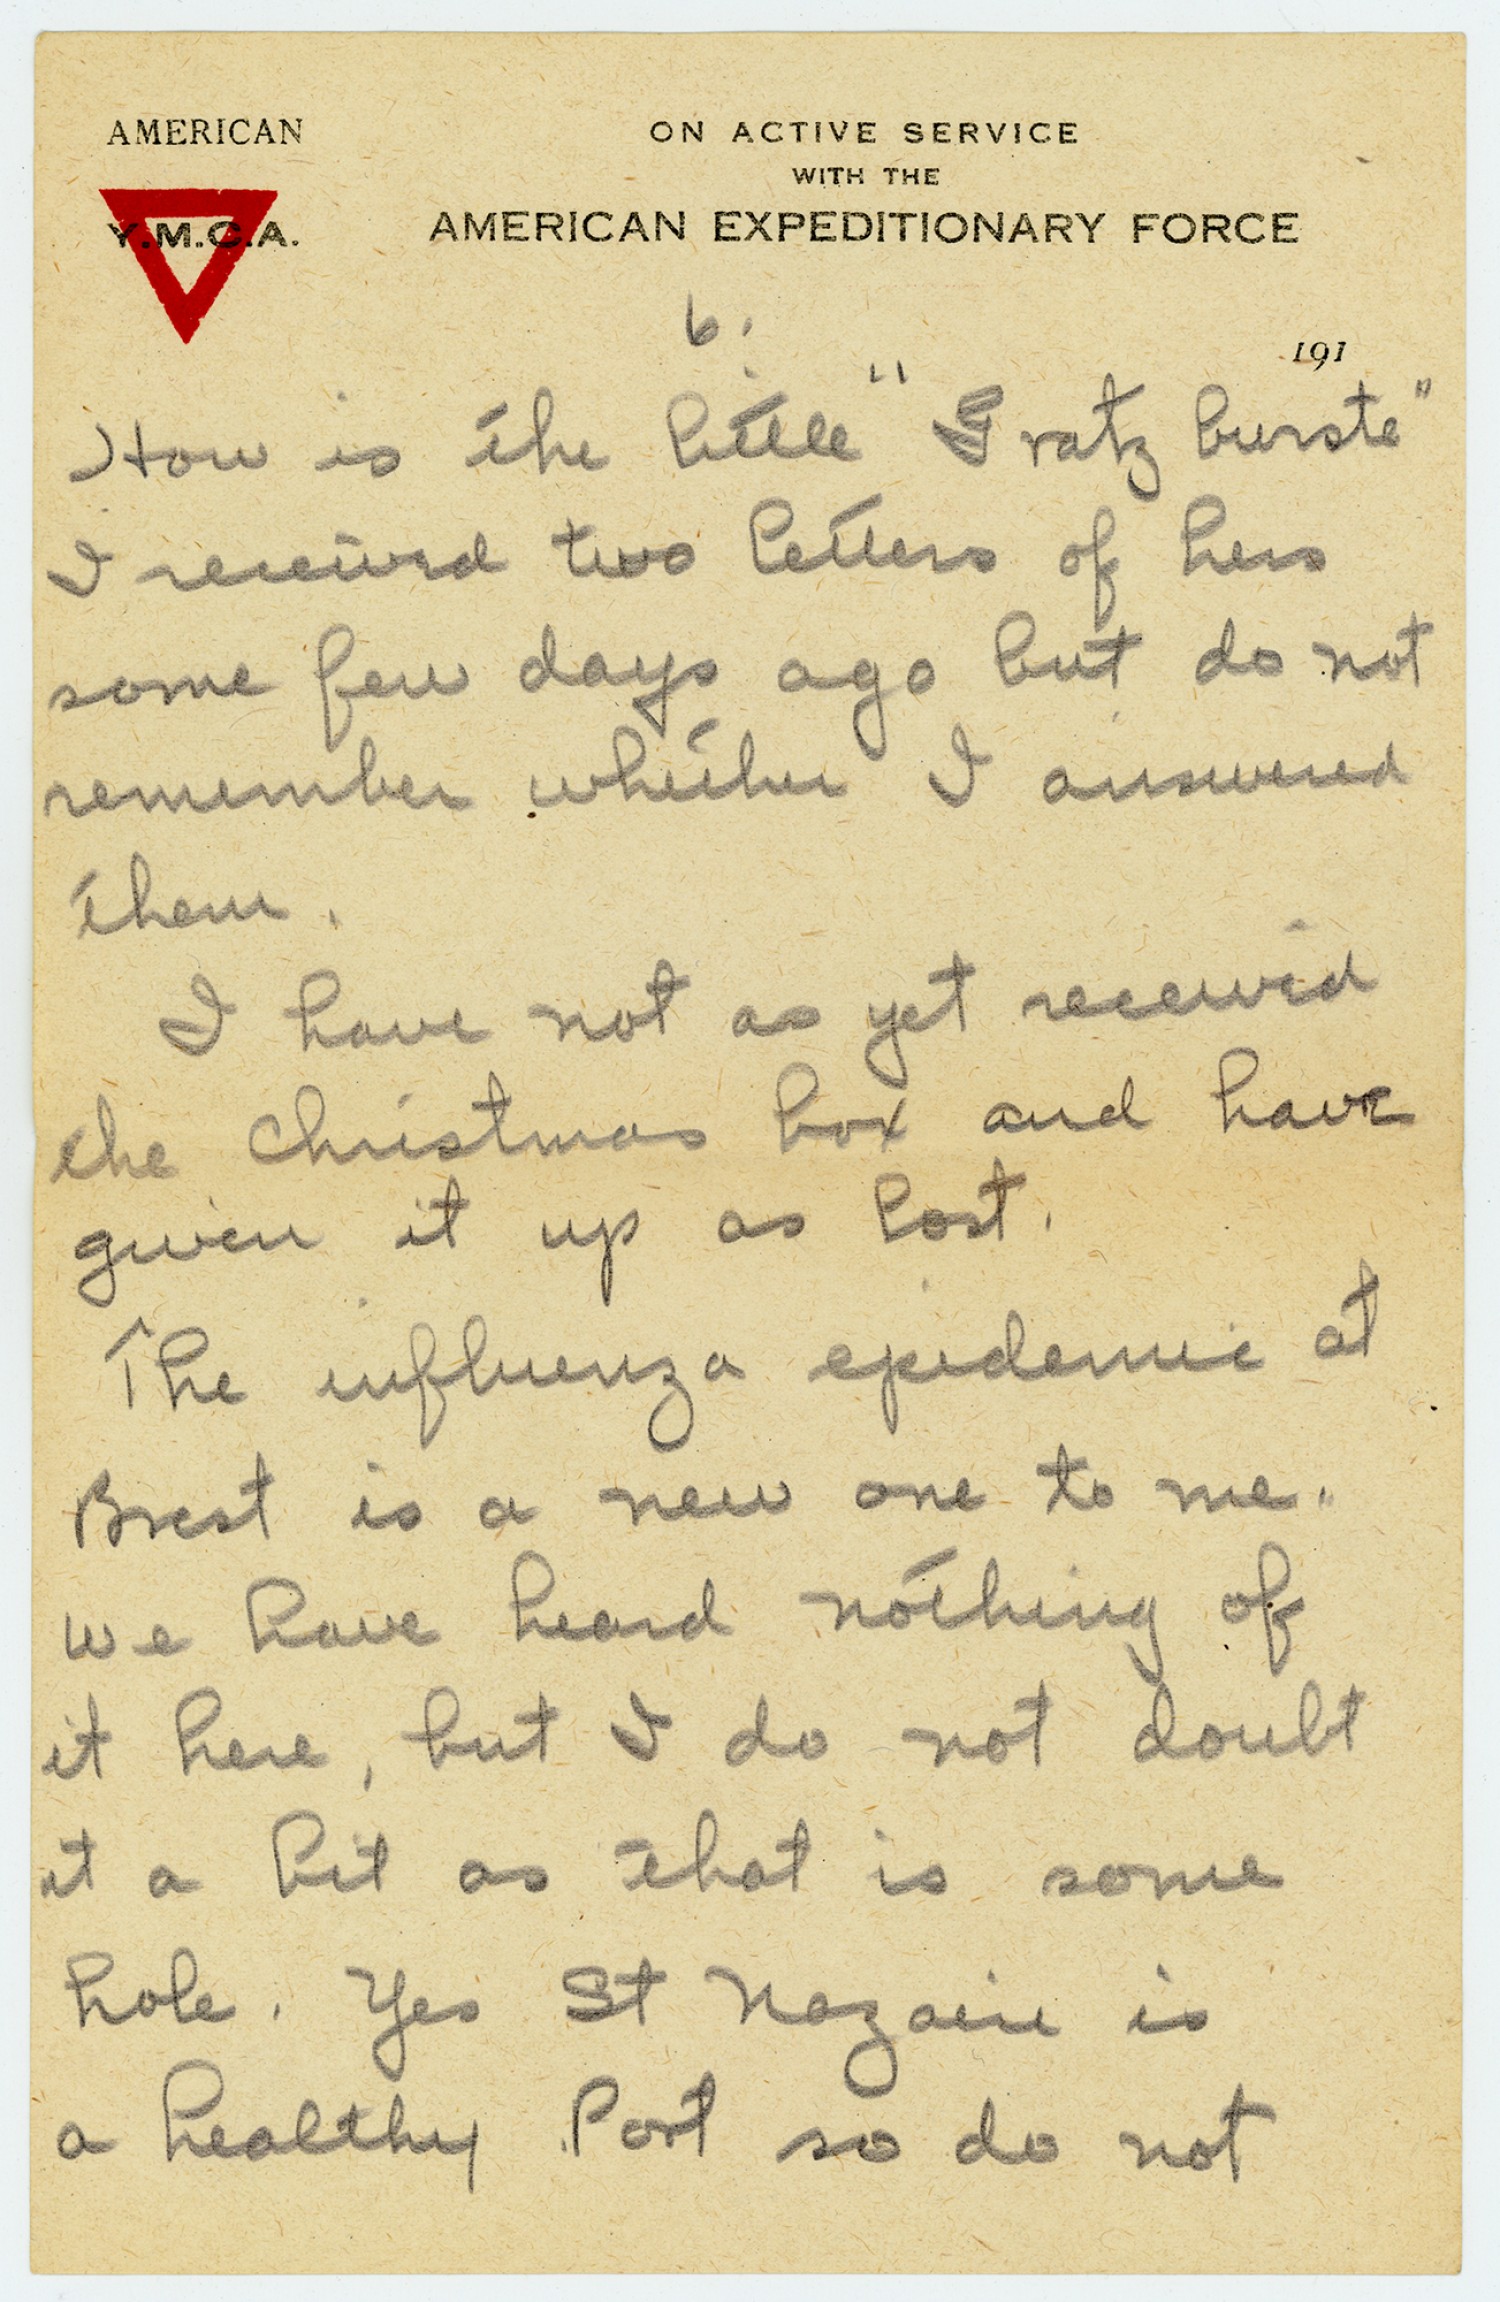 AMERICAN
Y.M.C.A.
ON ACTIVE SERVICE
WITH THE
AMERICAN EXPEDITIONARY FORCE
6.
191
How is the little "Gratz burste"
I received two letters of hers
some few days ago but do not
remember whether I answered
them.
I have not as yet received
the Christmas box and have
given it up as lost.
The influenza epidemic at
Brest is a new one to me.
We have heard nothing of
it here, but I do not doubt
it a bit as that is some
hole. Yes St Nazaire is
a healthy Port so do not